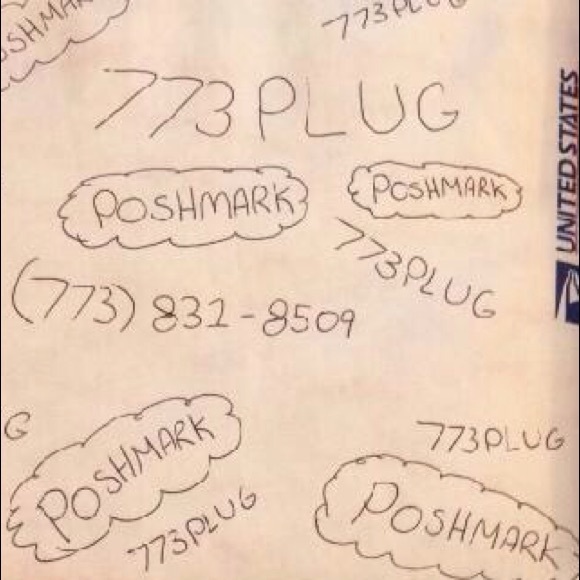 POSHMARK
773PLUG
773PLUG
POSHMARK
POSHMARK
773PLUG
(773) 831-8509
UNITED STATES
G
POSHMARK
773PLUG
773PLUG
POSHMARK